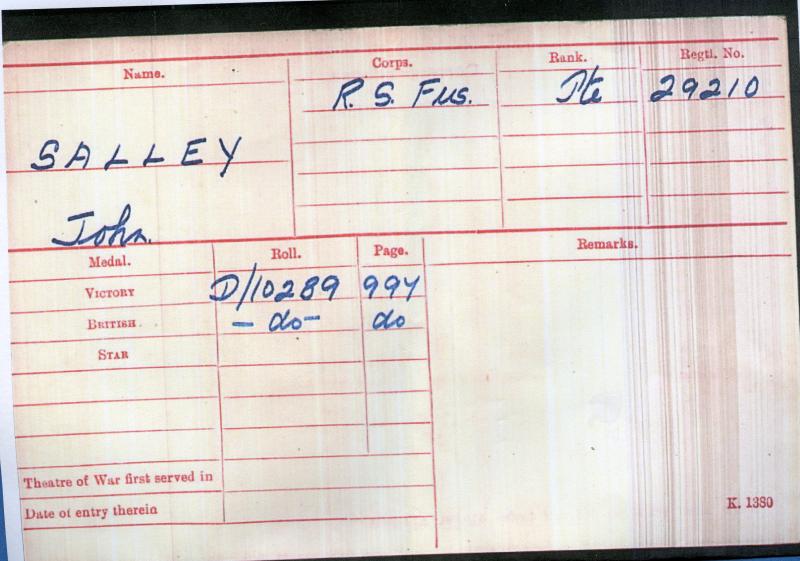 Name. Corps. Rank. Regtl. No.
R. S. Fus. Pte 29210
SALLEY
John.
Medal. Roll. Page. Remarks.
VICTORY D/10289 994
BRITISH - do - do
STAR
Theatre of War first served in
Date of entry therein
K. 1380